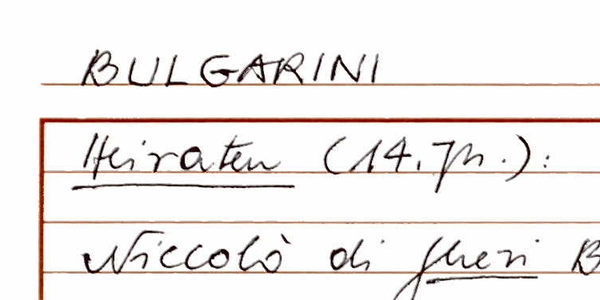 BULGARINI
Heiraten (14. Jh.):
Niccolò di Gheri B